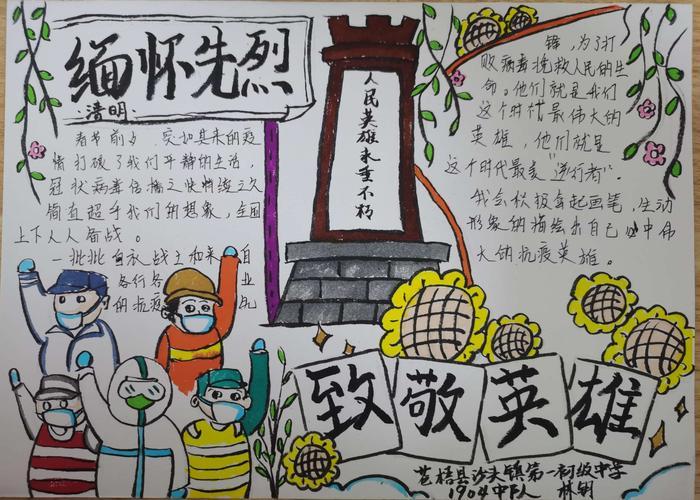 缅怀先烈
清明.
春节前夕,突如其来的疫
情打破了我们平静的生活,
冠状病毒传播之快持续之久
简直超乎我们的想象,全国
上下人人备战。
一批批白衣战士和来自
各行各业
的抗疫
人民英雄永垂不朽
锋,为了打
败病毒挽救人民的生
命。他们就是我们
这个时代最伟大的
英雄,他们就是
这个时代最美"逆行者"。
我会积极拿起画笔,生动
形象的描绘出自己心中伟
大的抗疫英雄。
致敬英雄
苍梧县沙头镇第一初级中学
1904中队